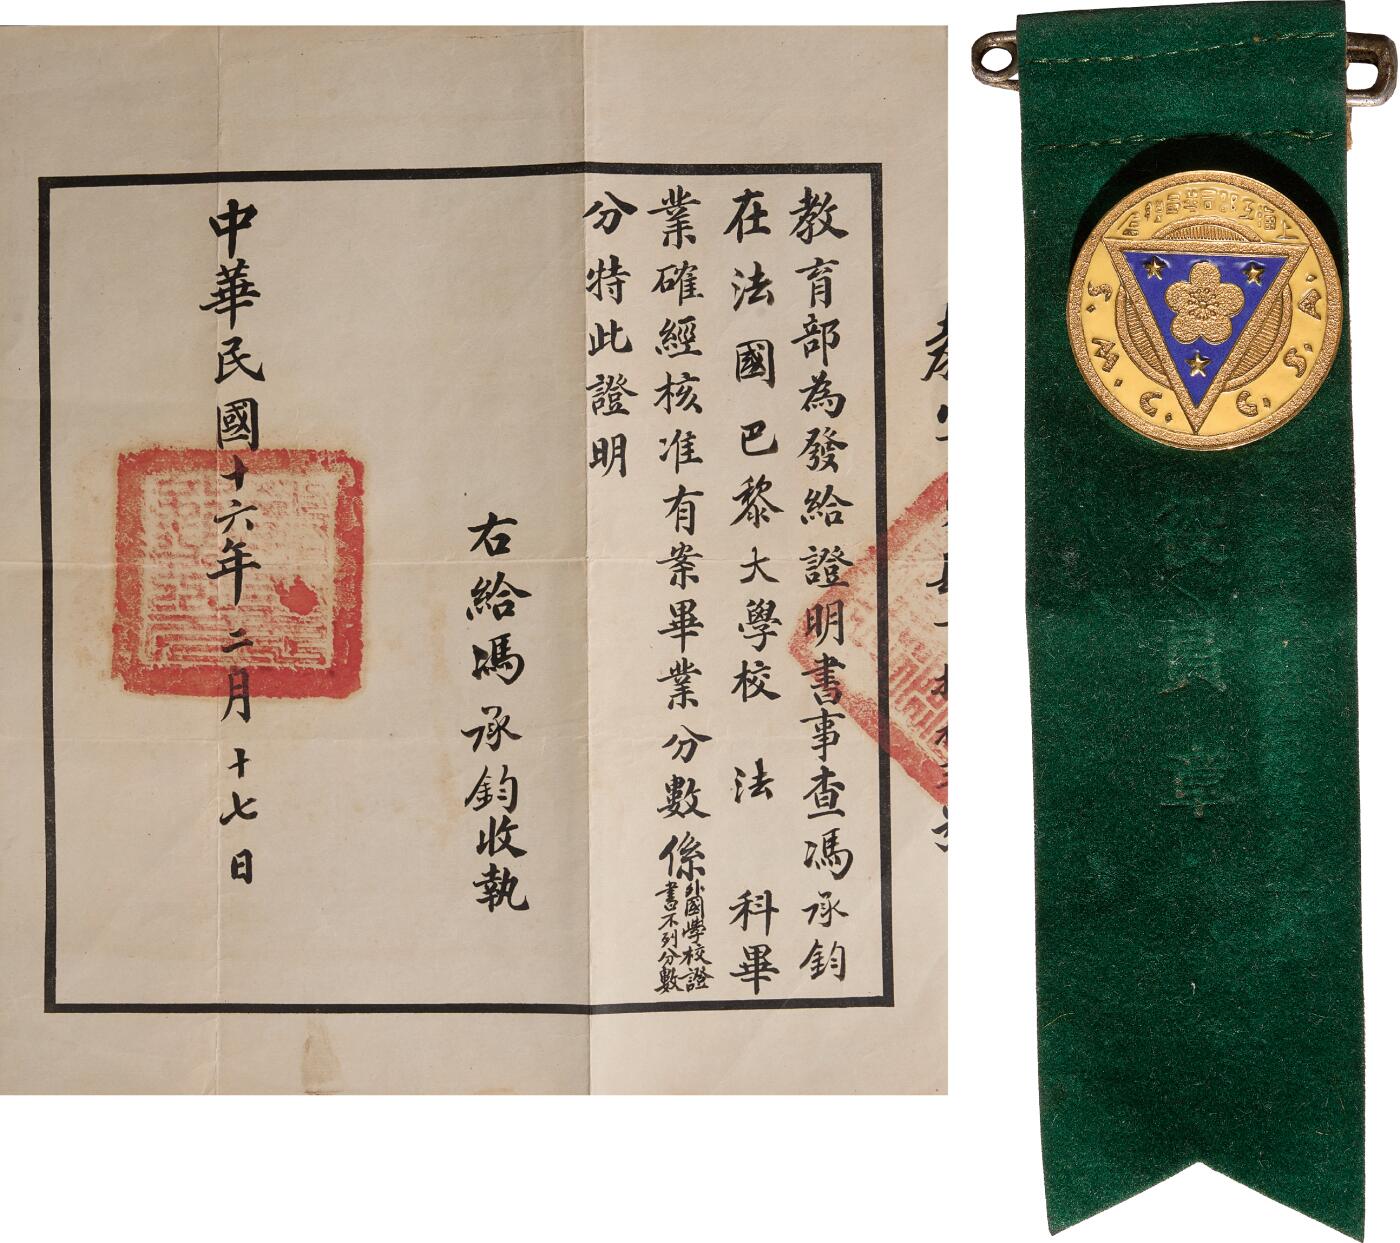 教育部為發給證明書事查馮承鈞
在法國巴黎大學校法科畢
業確經核准有案畢業分數係
外國學校證
書不列分數
分特此證明
右給馮承鈞收執
中華民國十六年二月十七日
S.W.C.C.S.A.
員章